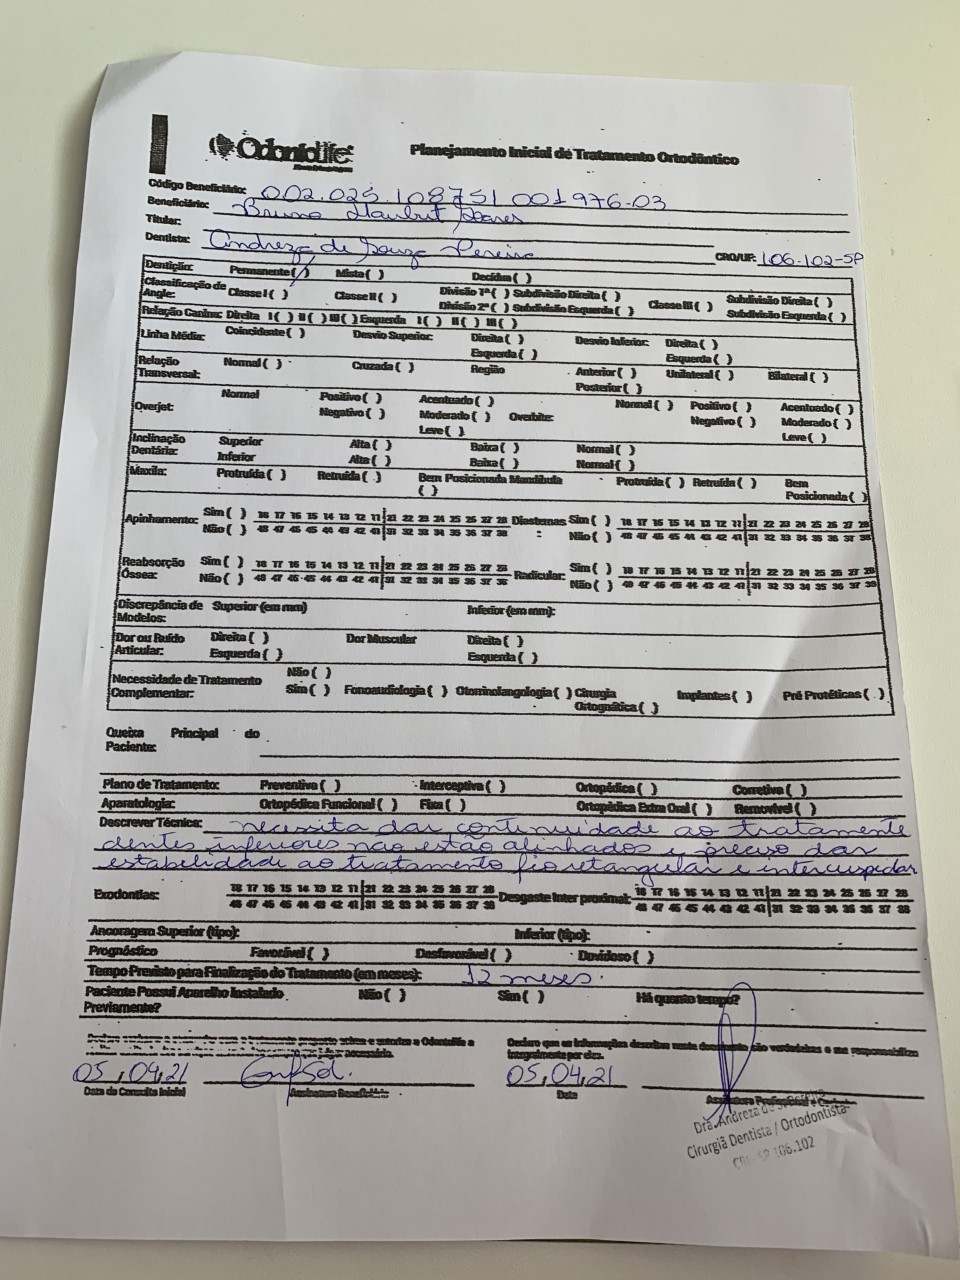 Odontolife Planejamento Inicial de Tratamento Ortodôntico
Código Beneficiário: 002.025.108751 001976-03
Beneficiário: Bruno Soares
Titular:
Dentista: Andreza de Souza Pereira CRO/UF: 106.102-SP
Dentição: Permanente (/) Mista ( ) Decídua ( )
Classificação de Angle: Classe I ( ) Classe II ( ) Divisão 1ª ( ) Subdivisão Direita ( ) Classe III ( ) Subdivisão Direita ( )
Divisão 2ª ( ) Subdivisão Esquerda ( ) Subdivisão Esquerda ( )
Relação Canina: Direita I ( ) II ( ) III ( ) Esquerda I ( ) II ( ) III ( )
Linha Média: Coincidente ( ) Desvio Superior: Direita ( ) Desvio Inferior: Direita ( )
Esquerda ( ) Esquerda ( )
Relação Transversal: Normal ( ) Cruzada ( ) Região Anterior ( ) Unilateral ( ) Bilateral ( )
Posterior ( )
Overjet: Normal Positivo ( ) Acentuado ( ) Overbite: Normal ( ) Positivo ( ) Acentuado ( )
Negativo ( ) Moderado ( ) Negativo ( ) Moderado ( )
Leve ( ) Leve ( )
Inclinação Dentária: Superior Alta ( ) Baixa ( ) Normal ( )
Inferior Alta ( ) Baixa ( ) Normal ( )
Maxila: Protruída ( ) Retruída ( ) Bem Posicionada ( ) Mandíbula Protruída ( ) Retruída ( ) Bem Posicionada ( )
Apinhamento: Sim ( ) 18 17 16 15 14 13 12 11 21 22 23 24 25 26 27 28 Diastemas: Sim ( ) 18 17 16 15 14 13 12 11 21 22 23 24 25 26 27 28
Não ( ) 48 47 46 45 44 43 42 41 31 32 33 34 35 36 37 38 Não ( ) 48 47 46 45 44 43 42 41 31 32 33 34 35 36 37 38
Reabsorção Óssea: Sim ( ) 18 17 16 15 14 13 12 11 21 22 23 24 25 26 27 28 Radicular: Sim ( ) 18 17 16 15 14 13 12 11 21 22 23 24 25 26 27 28
Não ( ) 48 47 46 45 44 43 42 41 31 32 33 34 35 36 37 38 Não ( ) 48 47 46 45 44 43 42 41 31 32 33 34 35 36 37 38
Discrepância de Modelos: Superior (em mm) Inferior (em mm):
Dor ou Ruído Articular: Direita ( ) Dor Muscular Direita ( )
Esquerda ( ) Esquerda ( )
Necessidade de Tratamento Complementar: Não ( )
Sim ( ) Fonoaudiologia ( ) Otorrinolangologia ( ) Cirurgia Ortognática ( ) Implantes ( ) Pré Protéticas ( )
Queixa Principal do Paciente:
Plano de Tratamento: Preventiva ( ) Interceptiva ( ) Ortopédica ( ) Corretiva ( )
Aparatologia: Ortopédica Funcional ( ) Fixa ( ) Ortopédica Extra Oral ( ) Removível ( )
Descrever Técnica: necessita dar continuidade ao tratamento
dentes inferiores não estão alinhados e preciso dar
estabelidade ao tratamento fio retangular e intercuspidar
Exodontias: 18 17 16 15 14 13 12 11 21 22 23 24 25 26 27 28 Desgaste Inter proximal: 18 17 16 15 14 13 12 11 21 22 23 24 25 26 27 28
48 47 46 45 44 43 42 41 31 32 33 34 35 36 37 38 48 47 46 45 44 43 42 41 31 32 33 34 35 36 37 38
Ancoragem Superior (tipo): Inferior (tipo):
Prognóstico Favorável ( ) Desfavorável ( ) Duvidoso ( )
Tempo Previsto para Finalização do Tratamento (em meses): 12 meses.
Paciente Possui Aparelho Instalado Previamente? Não ( ) Sim ( ) Há quanto tempo?
autorizo a Odontolife a Declaro que as informações descritas neste documento são verdadeiras e me responsabilizo
necessário. integralmente por elas.
05,04,21 05,04,21
Data da Consulta Inicial Assinatura Beneficiário Data Assinatura Profissional e
Dra. Andreza de
Cirurgiã Dentista / Ortodontista
SP 106.102